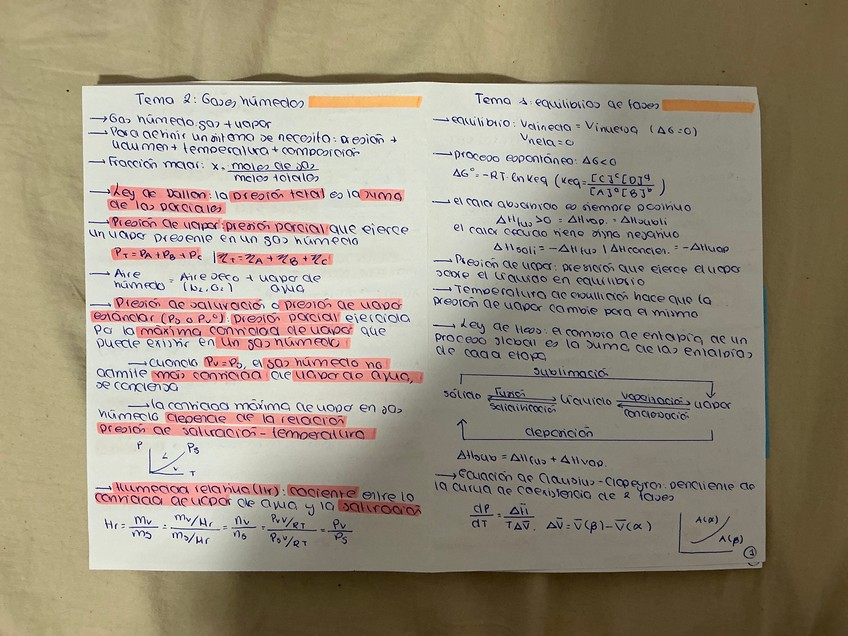 Tema 2: Gases húmedos
→ Gas húmedo: gas + vapor
→ Para definir un sistema se necesita: presión +
volumen + temperatura + composición
→ Fracción molar: x = moles de gas / moles totales
→ Ley de Dalton: la presión total es la suma
de las parciales
→ Presión de vapor: presión parcial que ejerce
un vapor presente en un gas húmedo
PT = PA + PB + PC | nT = nA + nB + nC
→ Aire húmedo = Aire seco (N2, O2) + vapor de agua
→ Presión de saturación o presión de vapor
estándar (Ps o Pv°): presión parcial ejercida
Por la máxima cantidad de vapor que
puede existir en un gas húmedo
→ cuando Pv = Ps, el gas húmedo no
admite más cantidad de vapor de agua,
se condensa
→ la cantidad máxima de vapor en gas
húmedo depende de la relación
presión de saturación - temperatura
P
L
Ps
V
T
→ Humedad relativa (Hr): cociente entre la
cantidad de vapor de agua y la saturación
Hr = mv/ms = (mv/Mr)/(ms/Mr) = nv/ns = (PvV/RT)/(PsV/RT) = Pv/Ps
Tema 1: equilibrios de fases
→ equilibrio: Vdirecta = Vinversa (ΔG=0)
Vneta = 0
→ proceso espontáneo: ΔG<0
ΔG° = -RT · Ln Keq (Keq = [C]ᶜ[D]ᵈ / [A]ᵃ[B]ᵇ)
→ el calor absorbido es siempre positivo
ΔHfus >0 = ΔHvap. = ΔHsubli
el calor cedido tiene signo negativo
ΔHsoli = -ΔHfus | ΔHconden. = -ΔHvap
→ Presión de vapor: presición que ejerce el vapor
sobre el líquido en equilibrio
→ Temperatura de ebullición hace que la
presión de vapor cambie por el mismo
→ Ley de Hess: el cambio de entalpía de un
proceso global es la suma de las entalpías
de cada etapa
sublimación
sólido fusión solidificación líquido vaporización condensación vapor
deposición
ΔHsub = ΔHfus + ΔHvap.
→ Ecuación de Clausius - Clapeyron: pendiente de
la curva de coexistencia de 2 fases
dP/dT = ΔH̄/TΔV̄. ΔV̄ = V̄(β) - V̄(α)
A(α)
A(β)
1